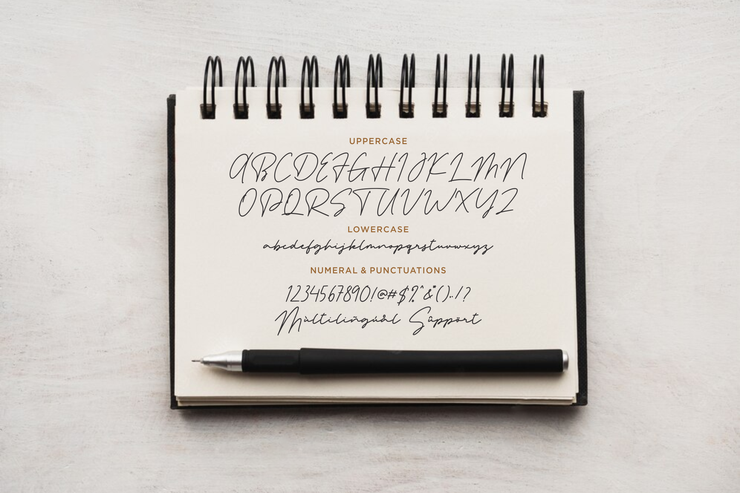 UPPERCASE
ABCDEFGHIJKLMN
OPQRSTUVWXYZ
LOWERCASE
abcdefghijklmnopqrstuvwxyz
NUMERAL & PUNCTUATIONS
1234567890!@#$%^&*()..!?
Multilingual Support